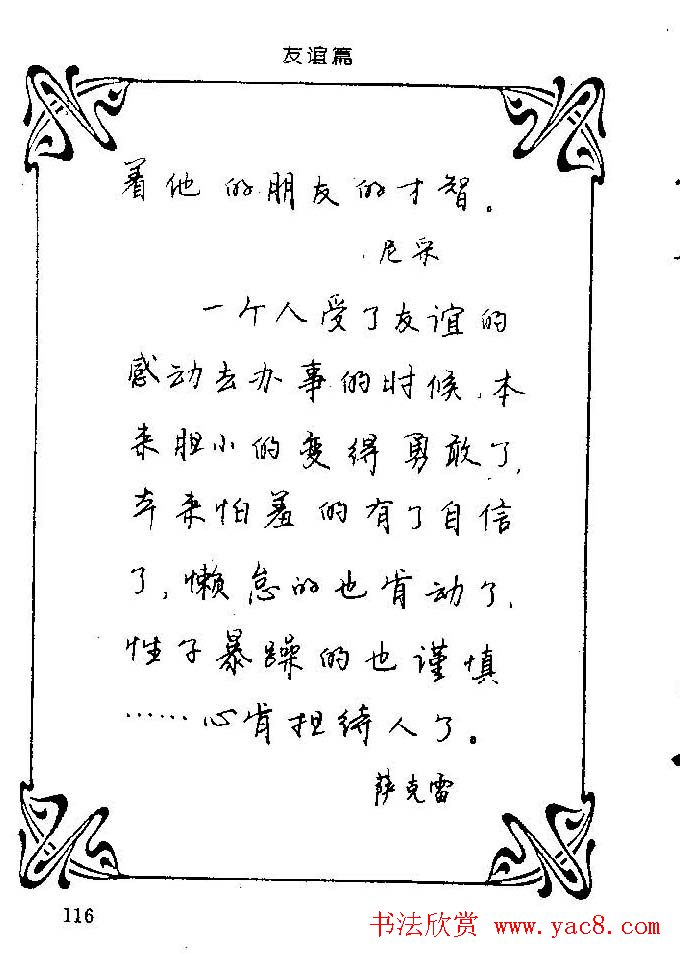 友谊篇
着他的朋友的才智。
尼采
一个人受了友谊的
感动去办事的时候，本
来胆小的变得勇敢了，
本来怕羞的有了自信
了，懒怠的也肯动了，
性子暴躁的也谨慎
……心肯担待人了。
萨克雷
116
书法欣赏 www.yac8.com